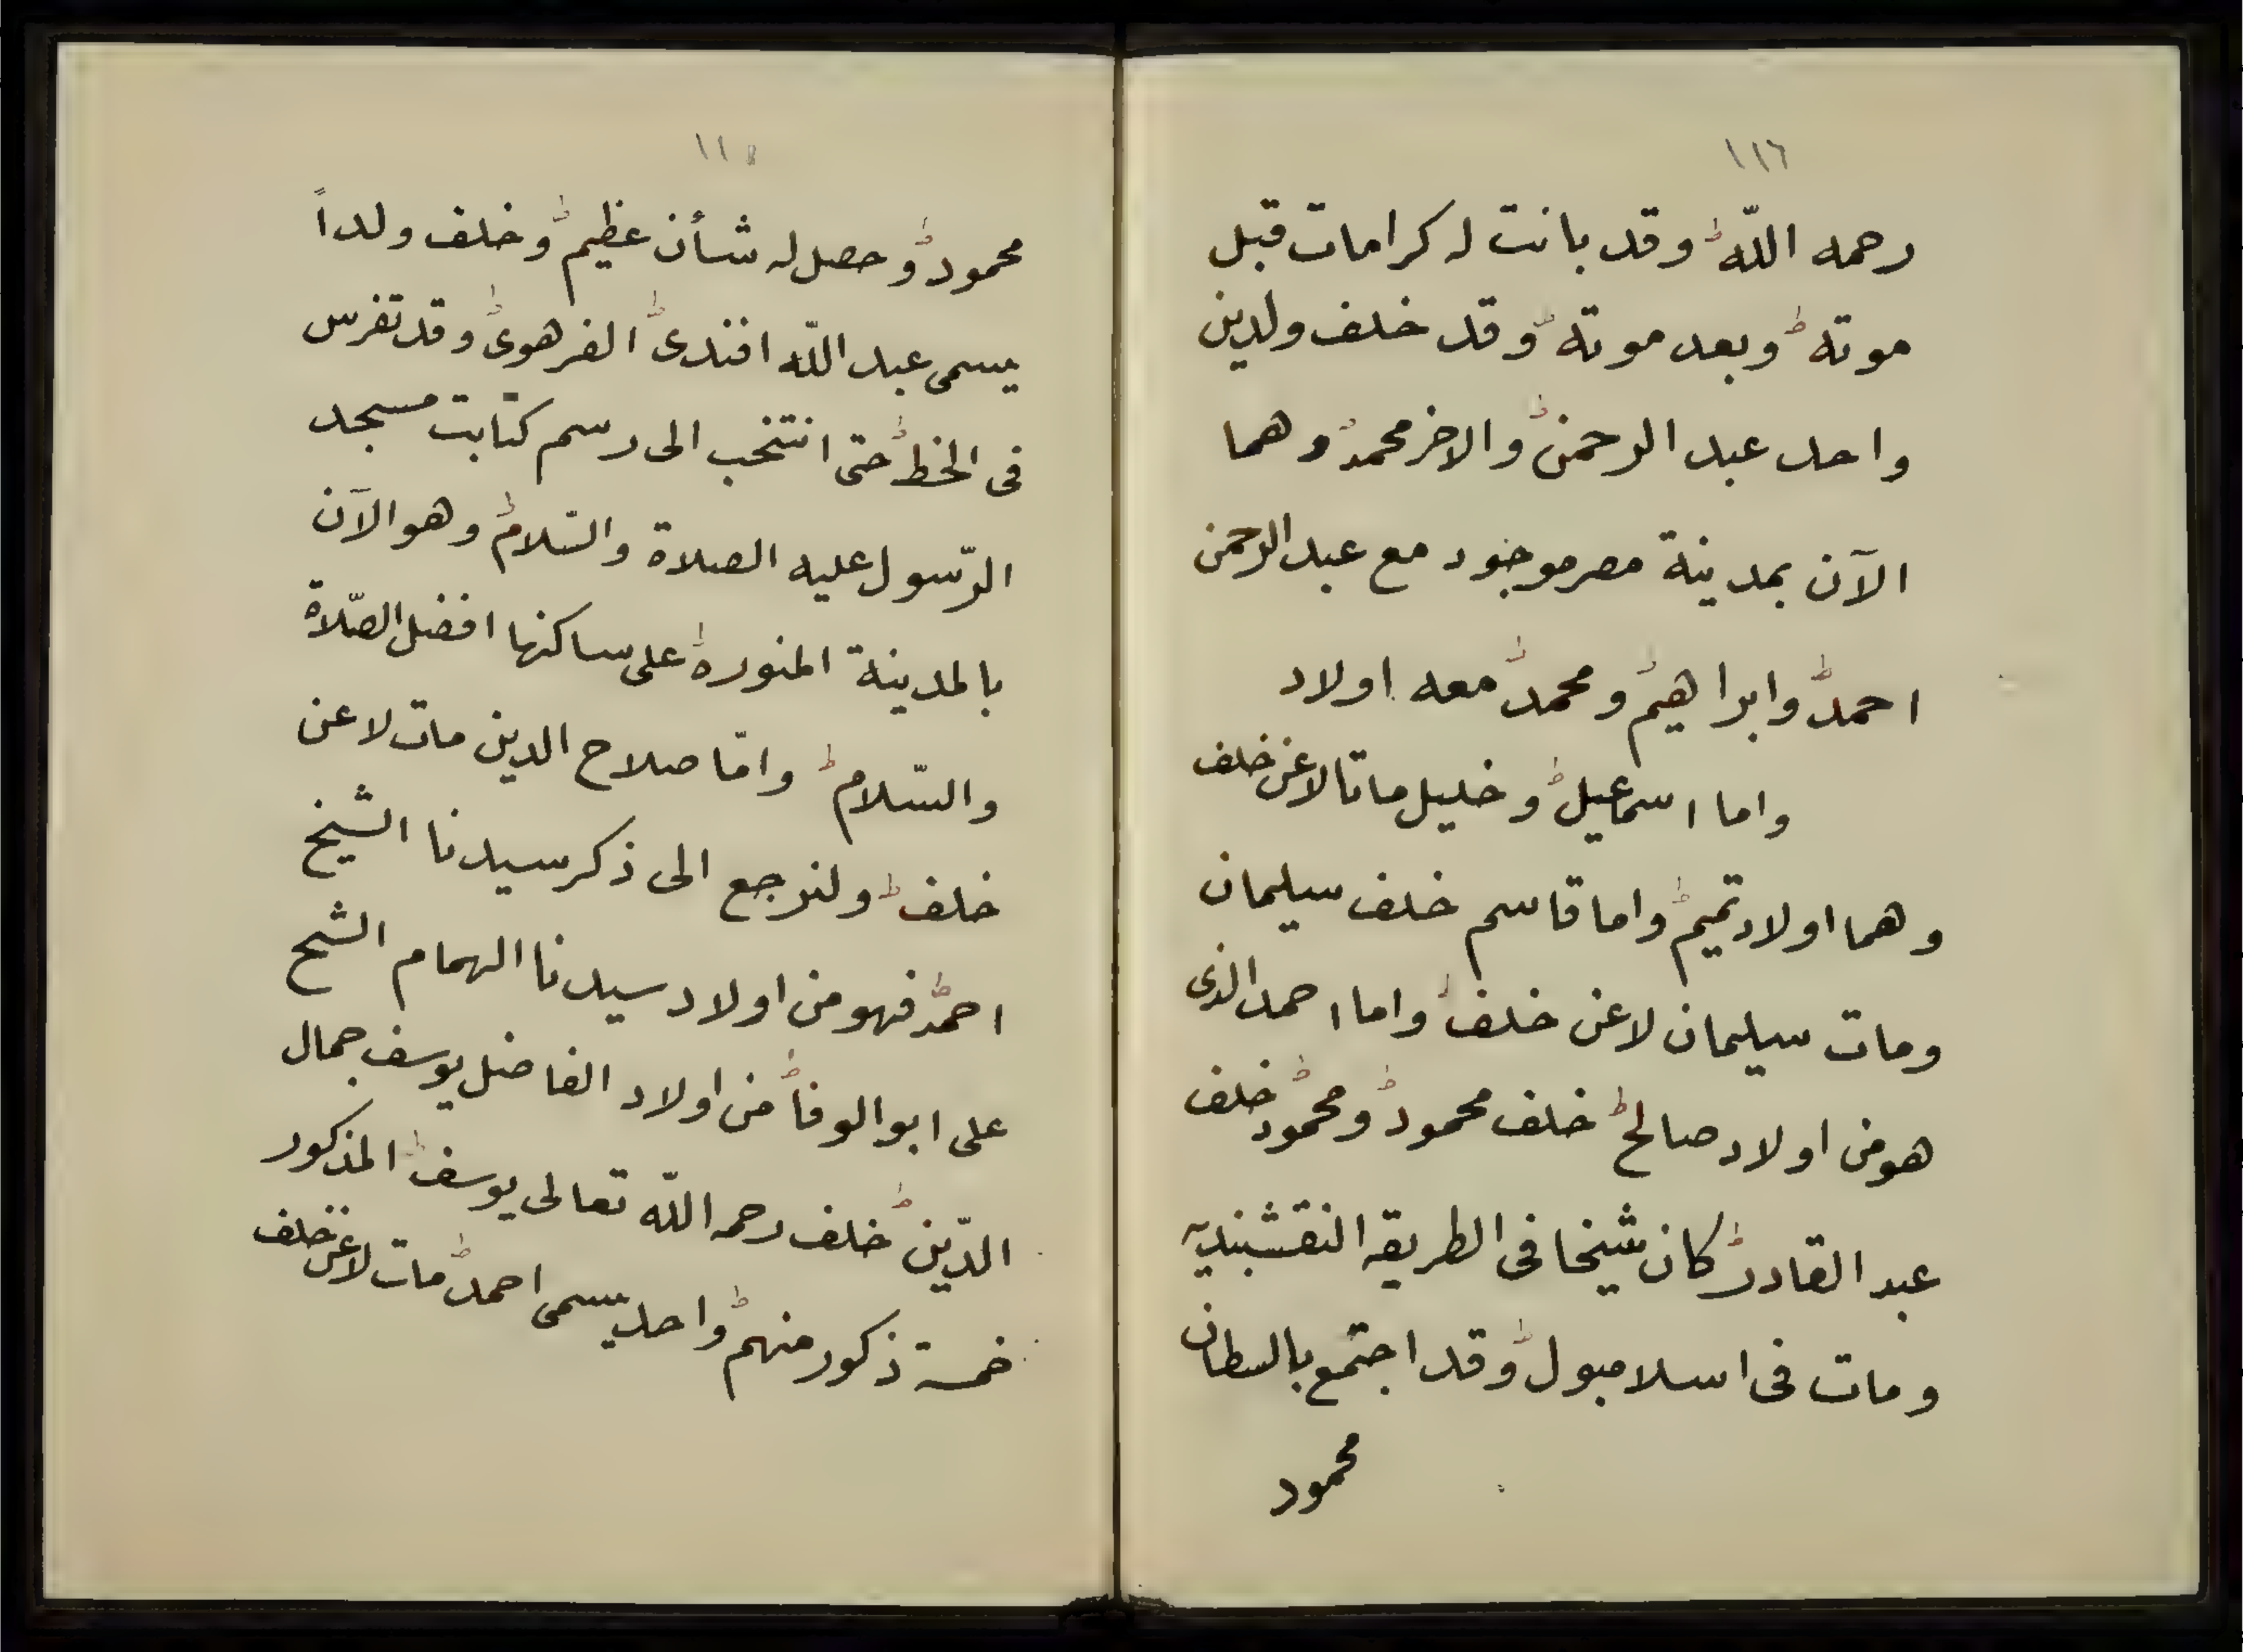 ١١٦
رحمه الله وقد بانت له كرامات قبل
موته وبعد موته وقد خلف ولدين
واحد عبد الرحمن والاخر محمد وهما
الآن بمدينة مصر موجود مع عبد الرحمن
احمد وابراهيم ومحمد معه اولاد
واما اسمعيل وخليل ماتا لاعن خلف
وهما اولاد تميم واما قاسم خلف سليمان
ومات سليمان لاعن خلف واما احمد الذى
هو من اولاد صالح خلف محمود ومحمود خلف
عبد القادر كان شيخا فى الطريقه النقشبنديه
ومات فى اسلامبول وقد اجتمع بالسطان
محمود
محمود وحصل له شأن عظيم وخلف ولداً
يسمى عبد اللّه افندى الفرهوى وقد تفرس
فى الخط حتى انتخب الى رسم كتابت مسجد
الرّسول عليه الصلاة والسّلام وهو الآن
بالمدينة المنوره على ساكنها افضل الصّلاة
والسّلام وامّا صلاح الدين مات لاعن
خلف ولنرجع الى ذكر سيدنا الشيخ
احمد فهو من اولاد سيدنا الهمام الشيخ
على ابو الوفا من اولاد الفاضل يوسف جمال
الدّين خلف رحمه اللّه تعالى يوسف المذكور
خمسة ذكور منهم واحد يسمى احمد مات لاعن خلف